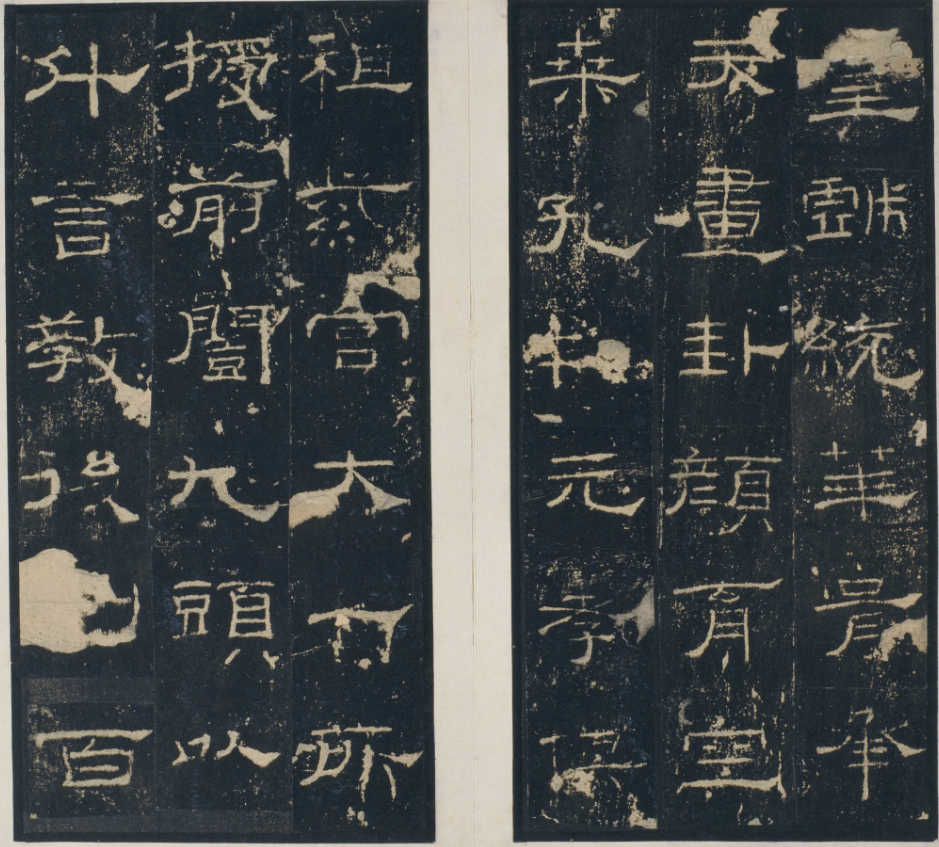 皇戲統華胥承
天畫卦顏育空
桒孔制元孝俱
祖紫宮大一所
授前闓九頭以
什言教後百